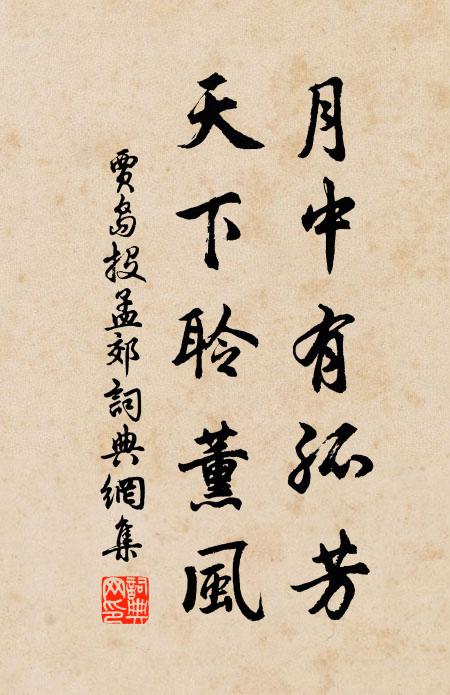 月中有孤芳
天下聆薰風
賈島投孟郊詞典網集
詞典網印